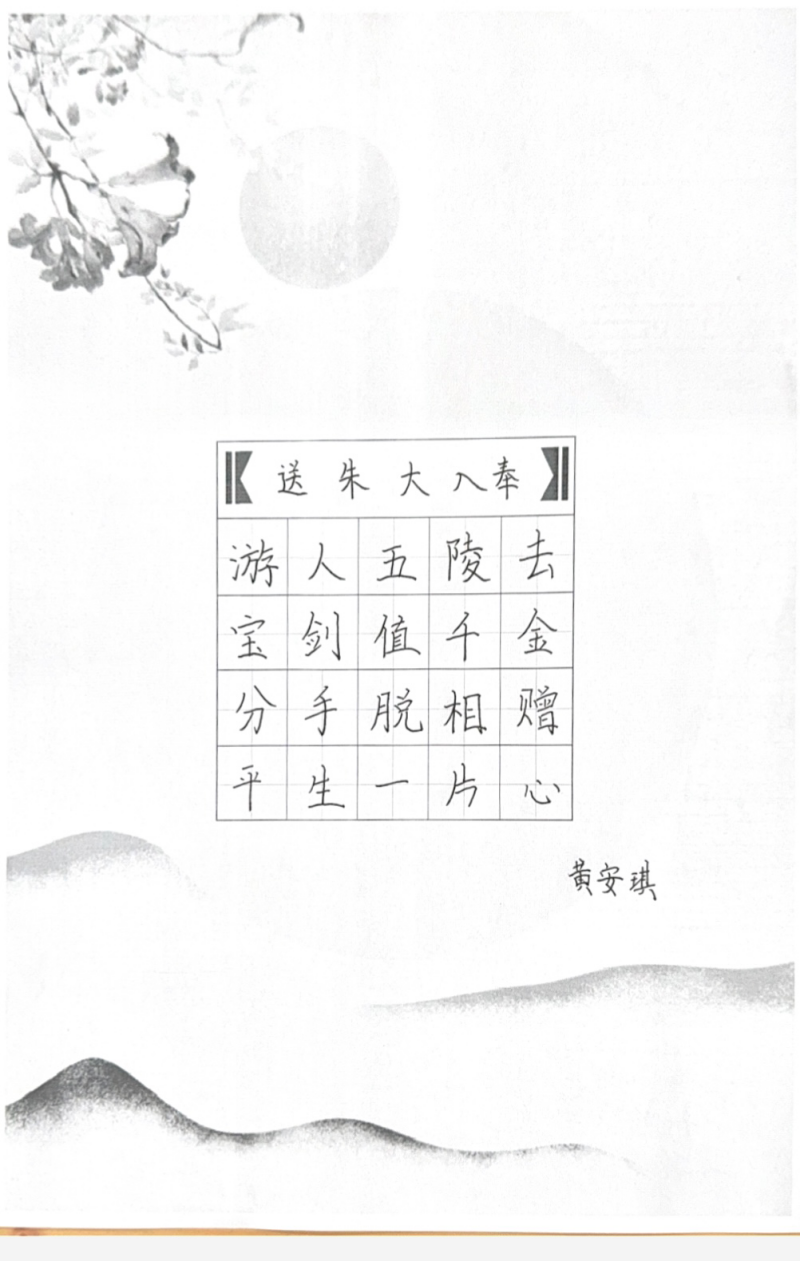 送朱大入奉
游人五陵去
宝剑值千金
分手脱相赠
平生一片心
黄安琪